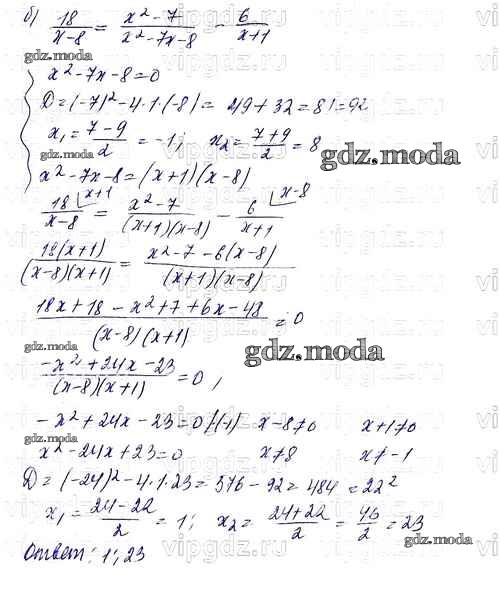 б) 18/(x-8) = (x²-7)/(x²-7x-8) - 6/(x+1)
gdz.moda
x²-7x-8=0
D=(-7)²-4·1·(-8)= 49+32=81=92
x₁= (7-9)/2 = -1; x₂= (7+9)/2 = 8
gdz.moda
gdz.moda
x²-7x-8=(x+1)(x-8)
18/(x-8) \x+1 = (x²-7)/((x+1)(x-8)) - 6/(x+1) \x-8
18(x+1)/((x-8)(x+1)) = (x²-7-6(x-8))/((x+1)(x-8))
(18x+18-x²+7+6x-48)/((x-8)(x+1)) = 0
gdz.moda
gdz.moda
(-x²+24x-23)/((x-8)(x+1)) = 0,
-x²+24x-23=0 /·(-1) x-8≠0 x+1≠0
gdz.moda
x²-24x+23=0 x≠8 x≠-1
D=(-24)²-4·1·23=576-92=484=22²
x₁= (24-22)/2 = 1; x₂= (24+22)/2 = 46/2 = 23
gdz.moda
Ответ: 1; 23
vipgdz.ru